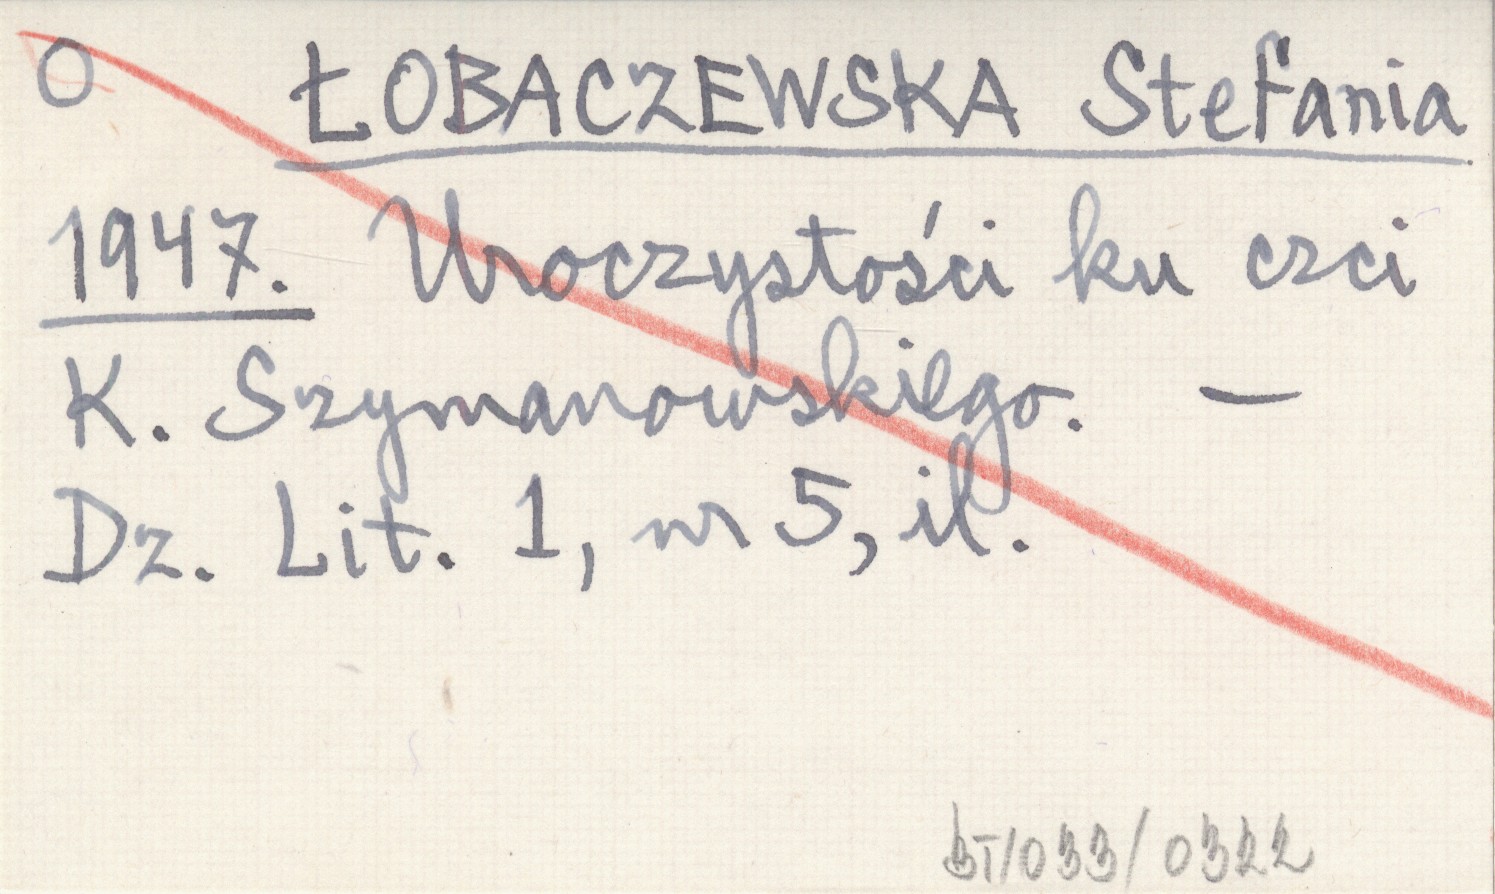 O ŁOBACZEWSKA Stefania
1947. Uroczystości ku czci
K. Szymanowskiego. —
Dz. Lit. 1, nr 5, il.
BT/033/0322